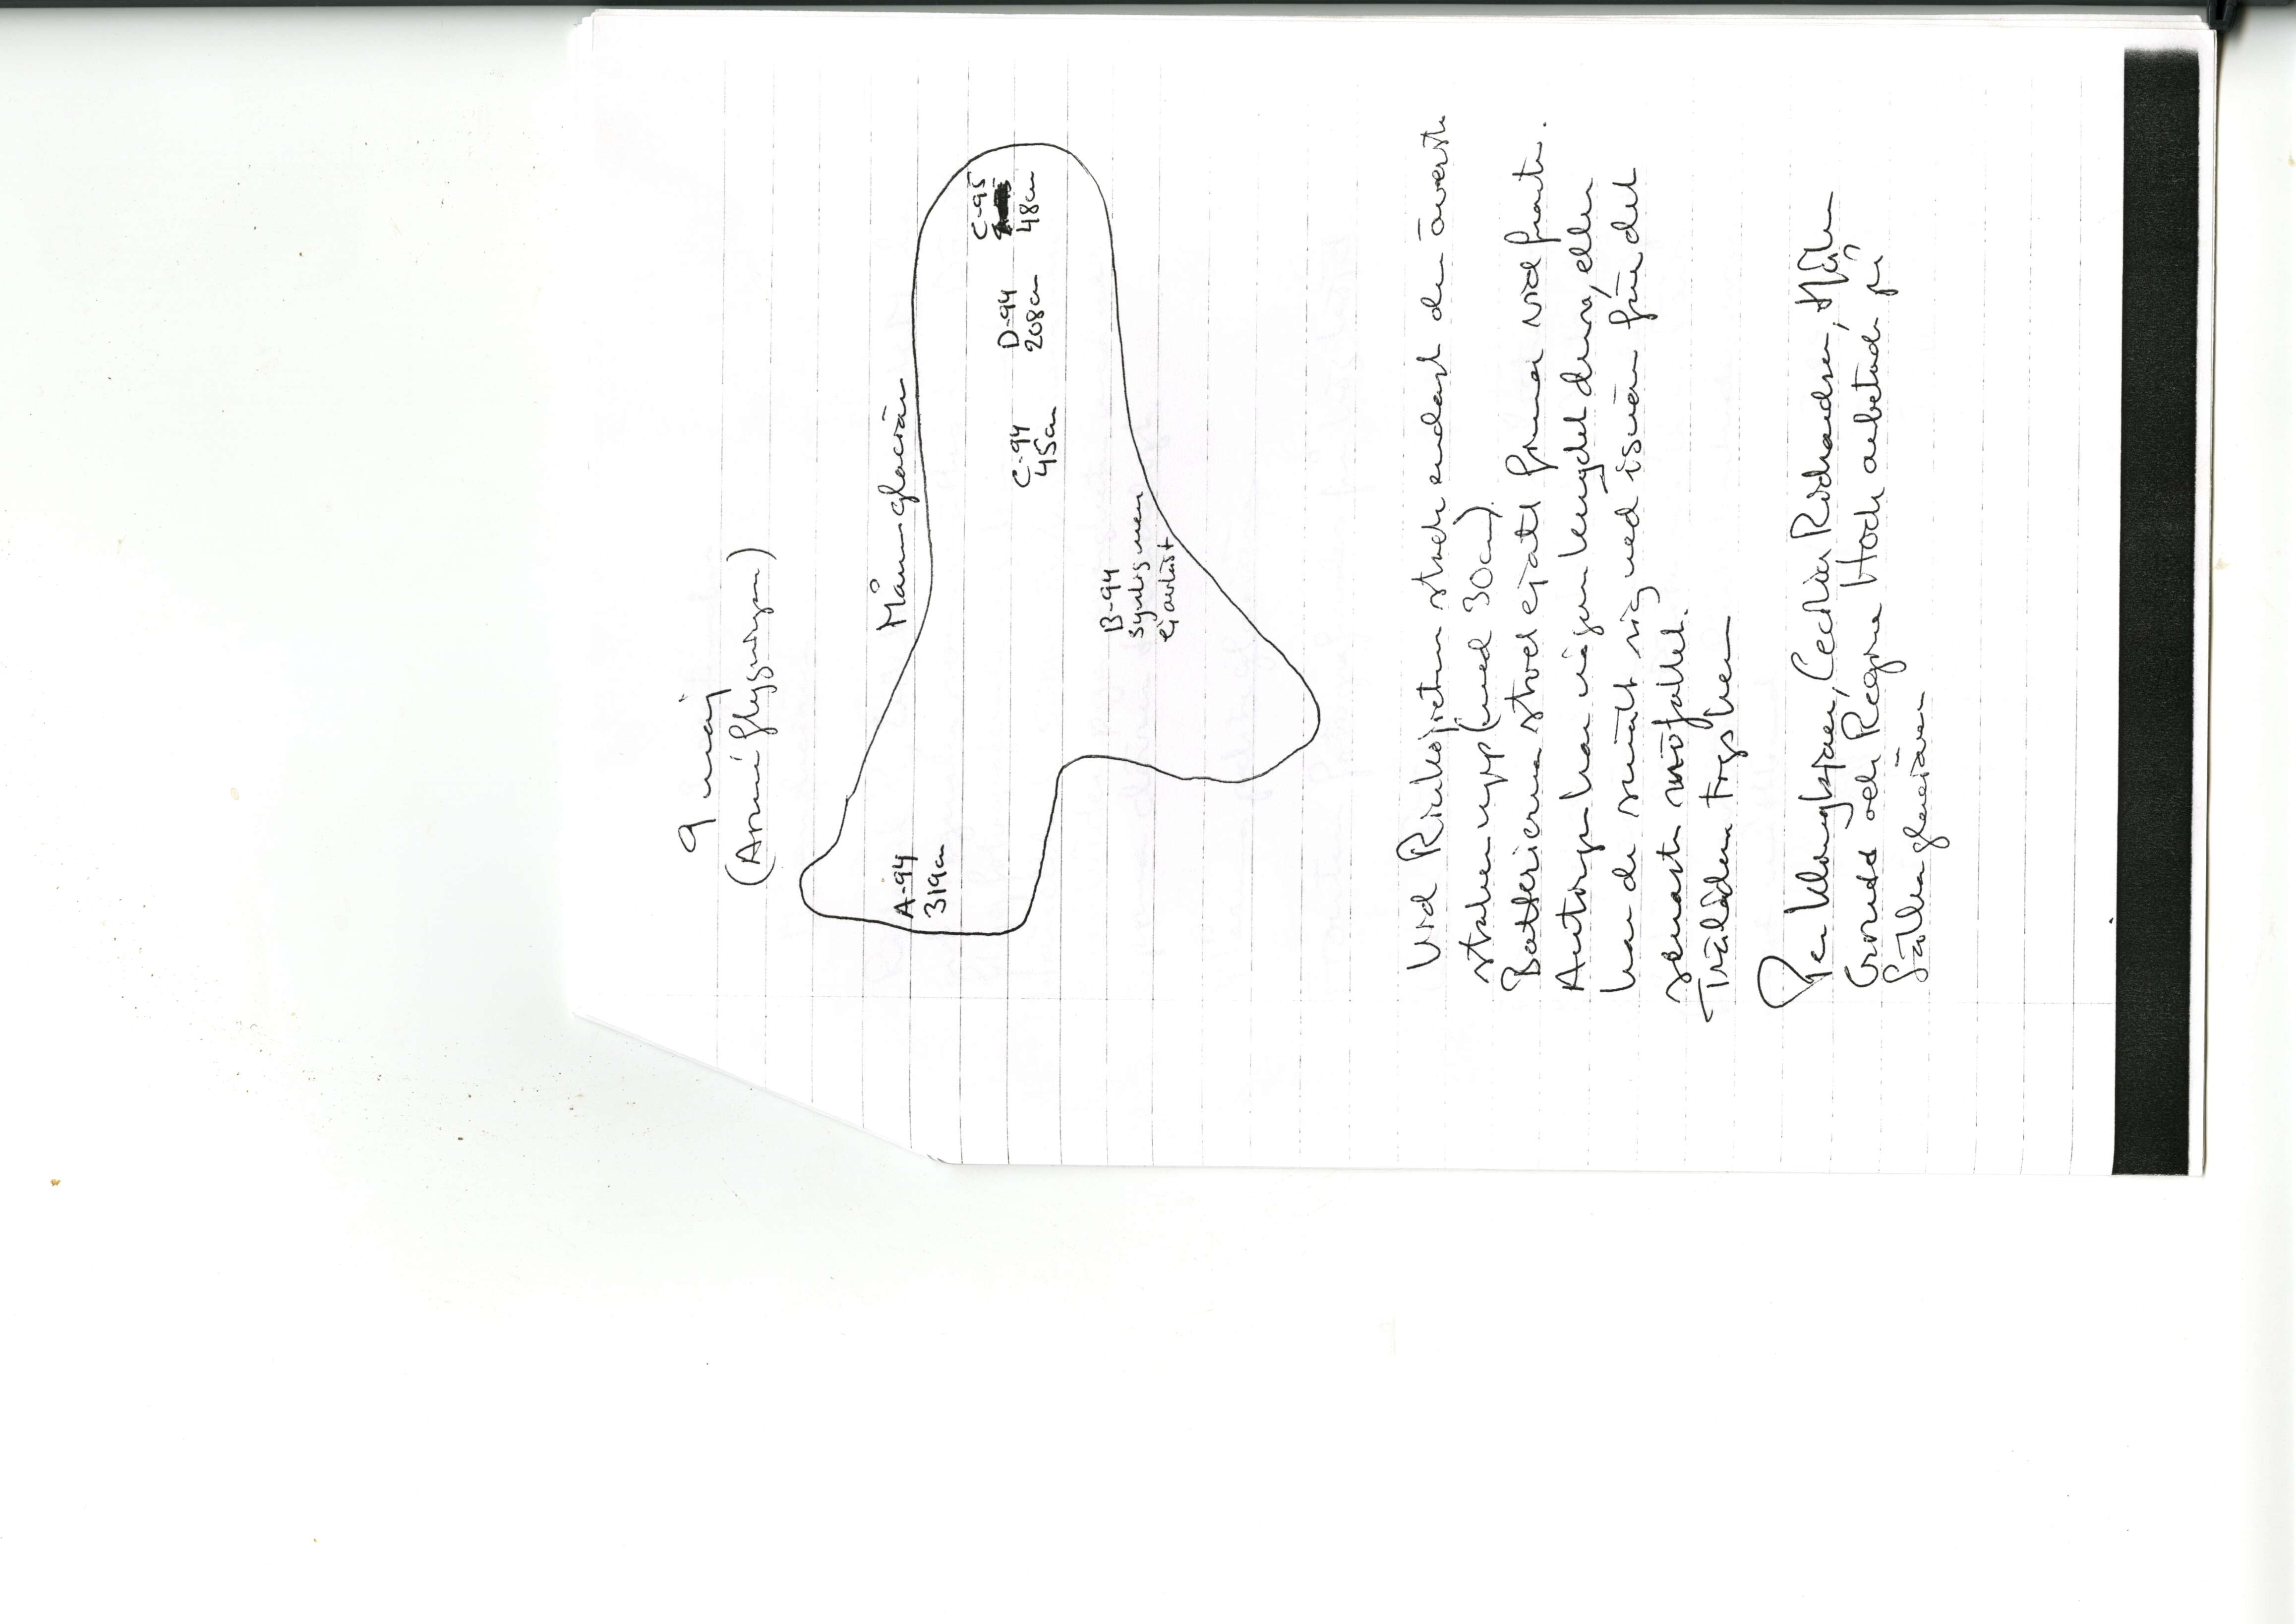 9 maj
(Arméflygningen)
Mårmaglaciären
A-94
319cm
C-95
48cm
D-94
208cm
C-94
45cm
B-94
synlig men
ej avläst
Vid Riukojietna stack endast den översta
staken upp (med 30cm).
Batterierna stod ej att finna vid fronten.
Antingen har någon knyckt dessa, eller
har de smält sig ned i snön före det
senaste snöfallet.
Trälådan togs hem
Per Klingbjer, Cecilia Richardson, Håkan
och Regine Hock arbetade på
Sälkaglaciären